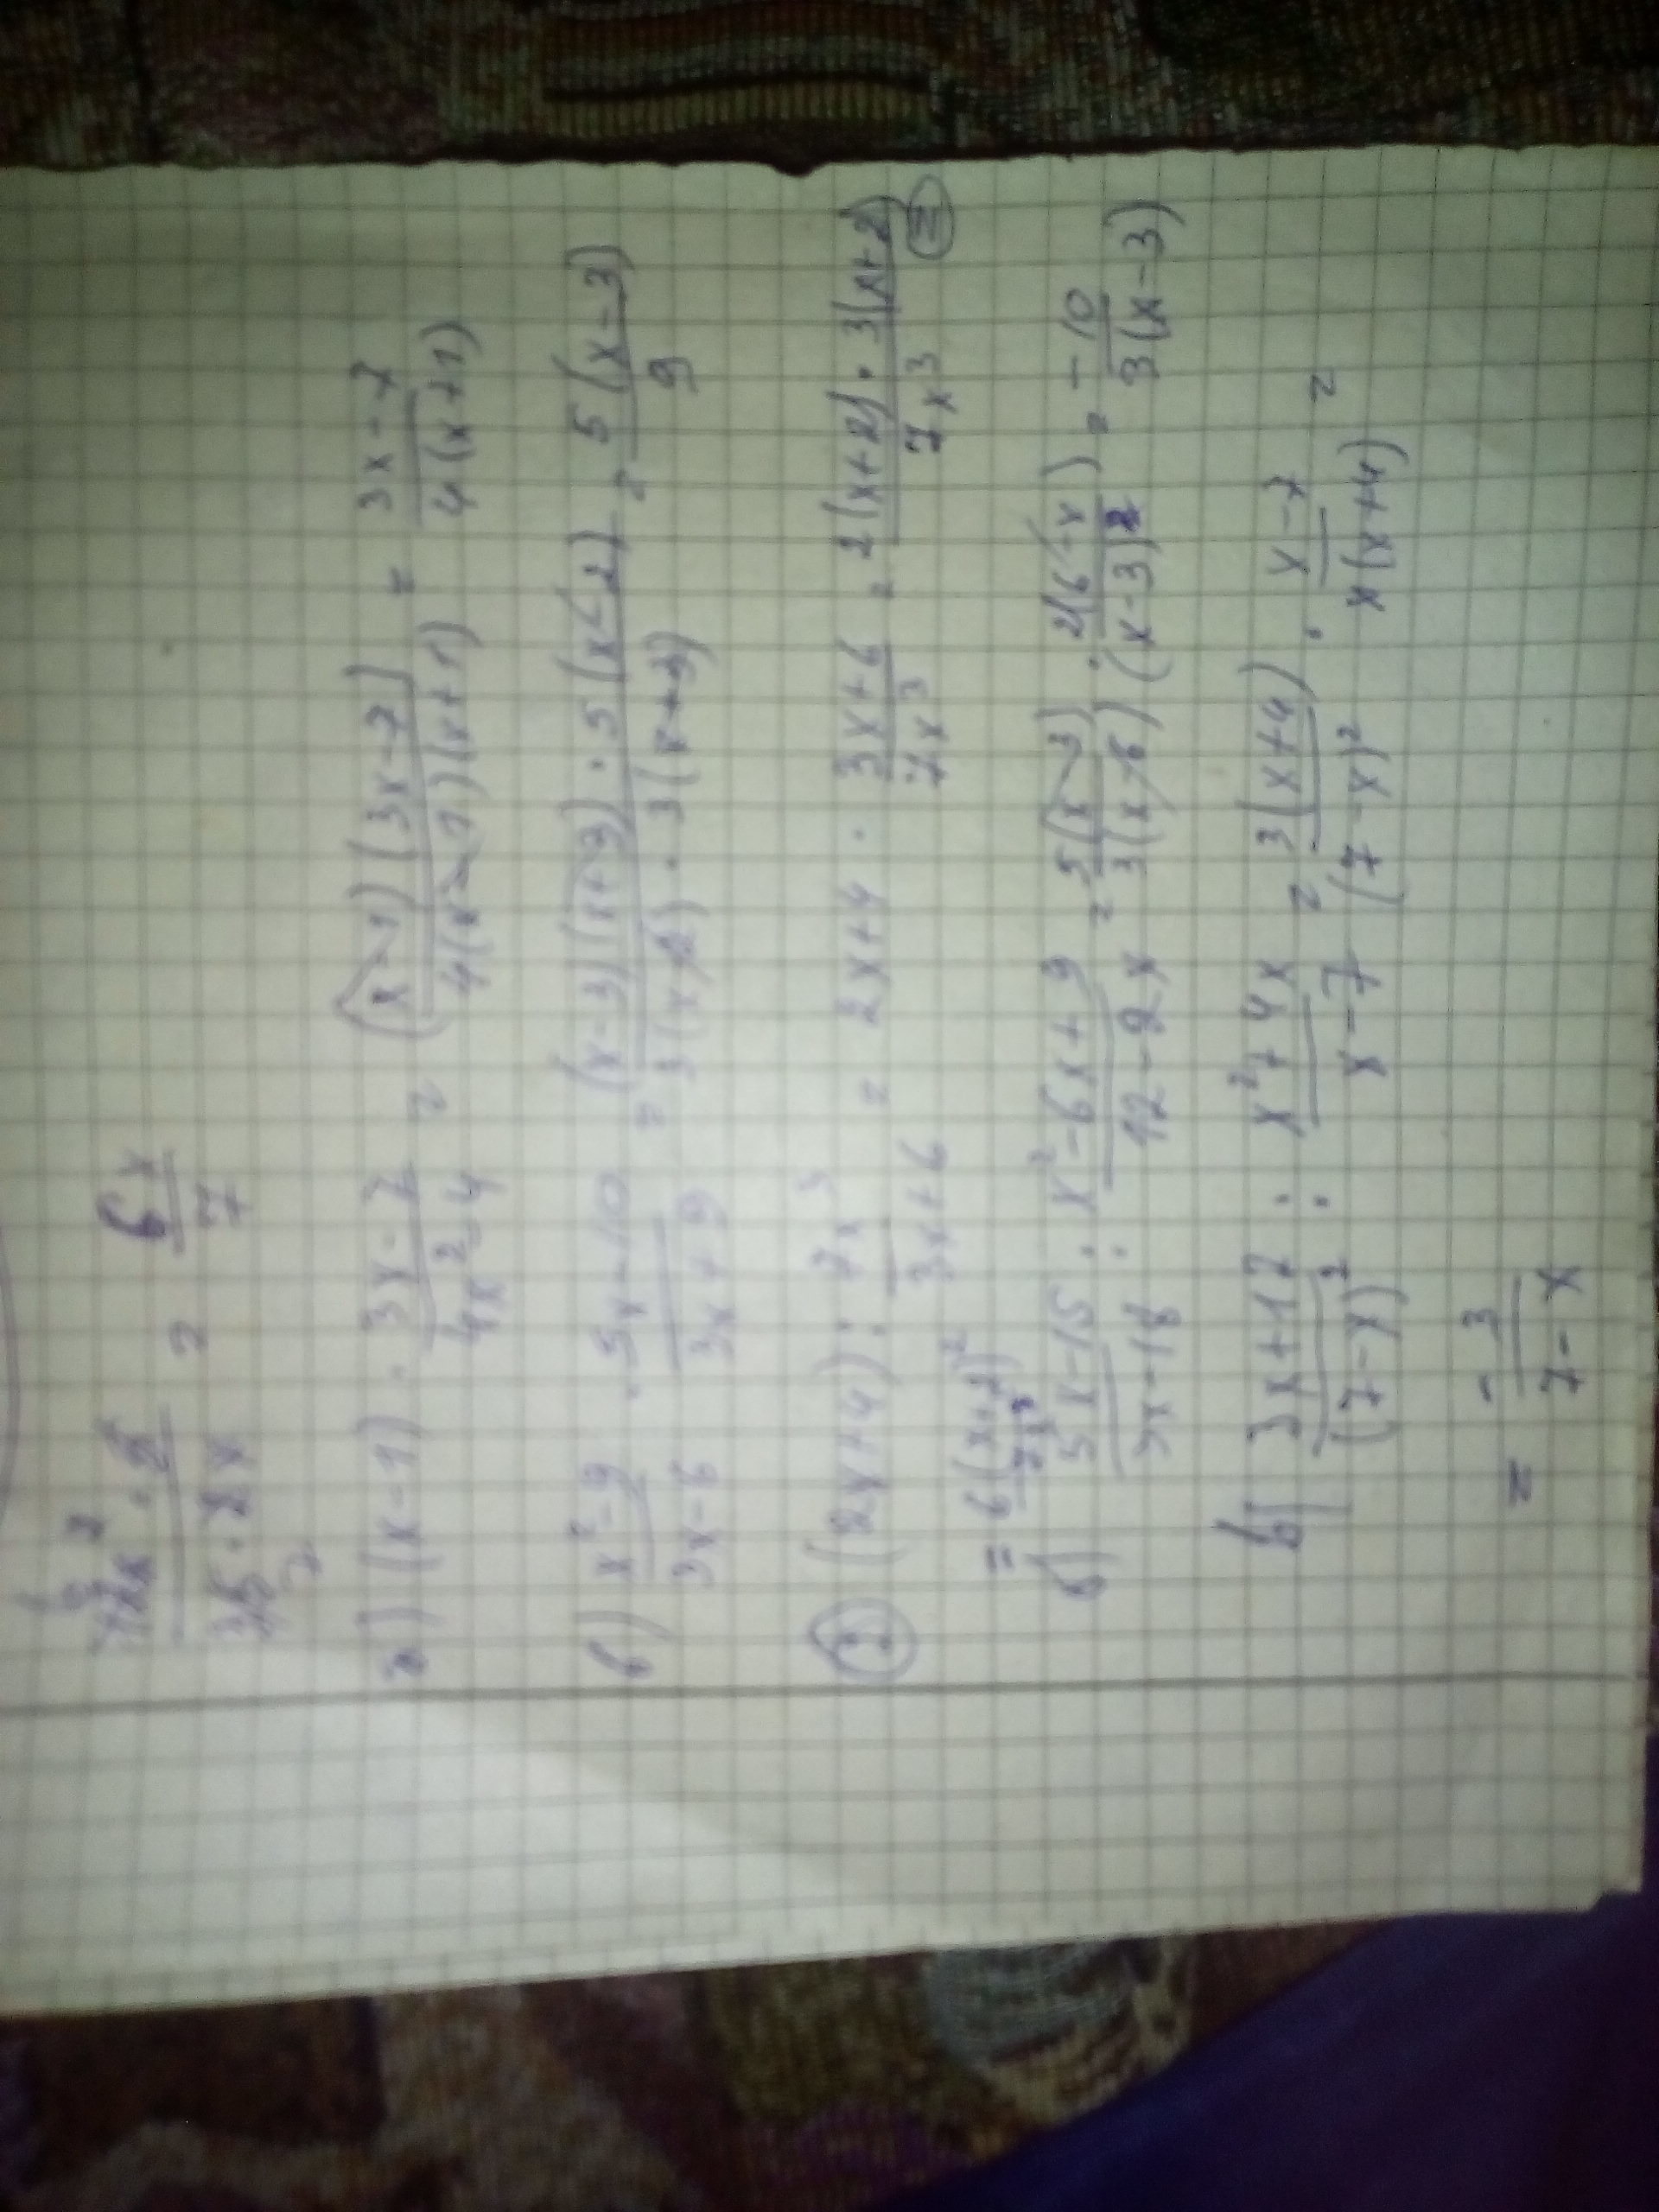 = 6x/7
(x-1) · (3x-7)/(4x²-4) = (x-1)(3x-7)/(4(x-1)(x+1)) = (3x-7)/(4(x+1))
б) (x²-9)/(3x-6) · (5x-10)/(3x+9) = (x-3)(x+3) · 5(x-2)/(3(x-2) · 3(x+3)) = 5(x-3)/9
(2x+4) : 7x³/(3x+6) = 2x+4 · (3x+6)/(7x³) = 2(x+2) · 3(x+2)/(7x³) =
= 6(x+2)²/(7x³)
б) (5x-15)/(3x-18) : (x²-6x+9)/(12-2x) = 5(x-3)/(3(x-6)) · 2(6-x)/(x-3)² = -10/(3(x-3))
(3x+12)/(7-x)² : (x²+4x)/(x-7) = 3(x+4)/(7-x)² · (x-7)/(x(x+4)) =
= -3/(7-x)